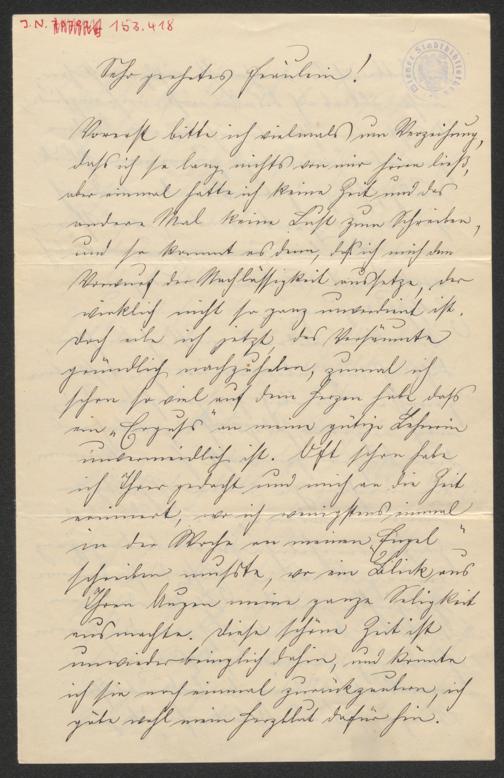 J.N. 153.418
Wiener Stadtbibliothek
Sehr geehrtes Fräulein!
Vorerst bitte ich vielmals um Verzeihung,
dass ich so lang nichts von mir hören ließ,
aber einmal hatte ich keine Zeit und das
andere Mal keine Lust zum Schreiben,
und so kommt es denn, daß ich mich dem
Vorwurf der Nachlässigkeit aussetze, der
wirklich nicht so ganz unverdient ist.
Doch eile ich jetzt, das Versäumte
gründlich nachzuholen, zumal ich
schon so viel auf dem Herzen habe dass
ein „Erguss" an meine gütige Lehrerin
unvermeidlich ist. Oft schon habe
ich Ihrer gedacht und mich an die Zeit
erinnert, wo ich wenigstens einmal
in der Woche an meinen „Engel"
schreiben musste, wo ein Blick aus
Ihren Augen meine ganze Seligkeit
ausmachte. Diese schöne Zeit ist
unwiederbringlich dahin, und könnte
ich sie noch einmal zurückzaubern, ich
gäbe wohl mein Herzblut dafür hin.